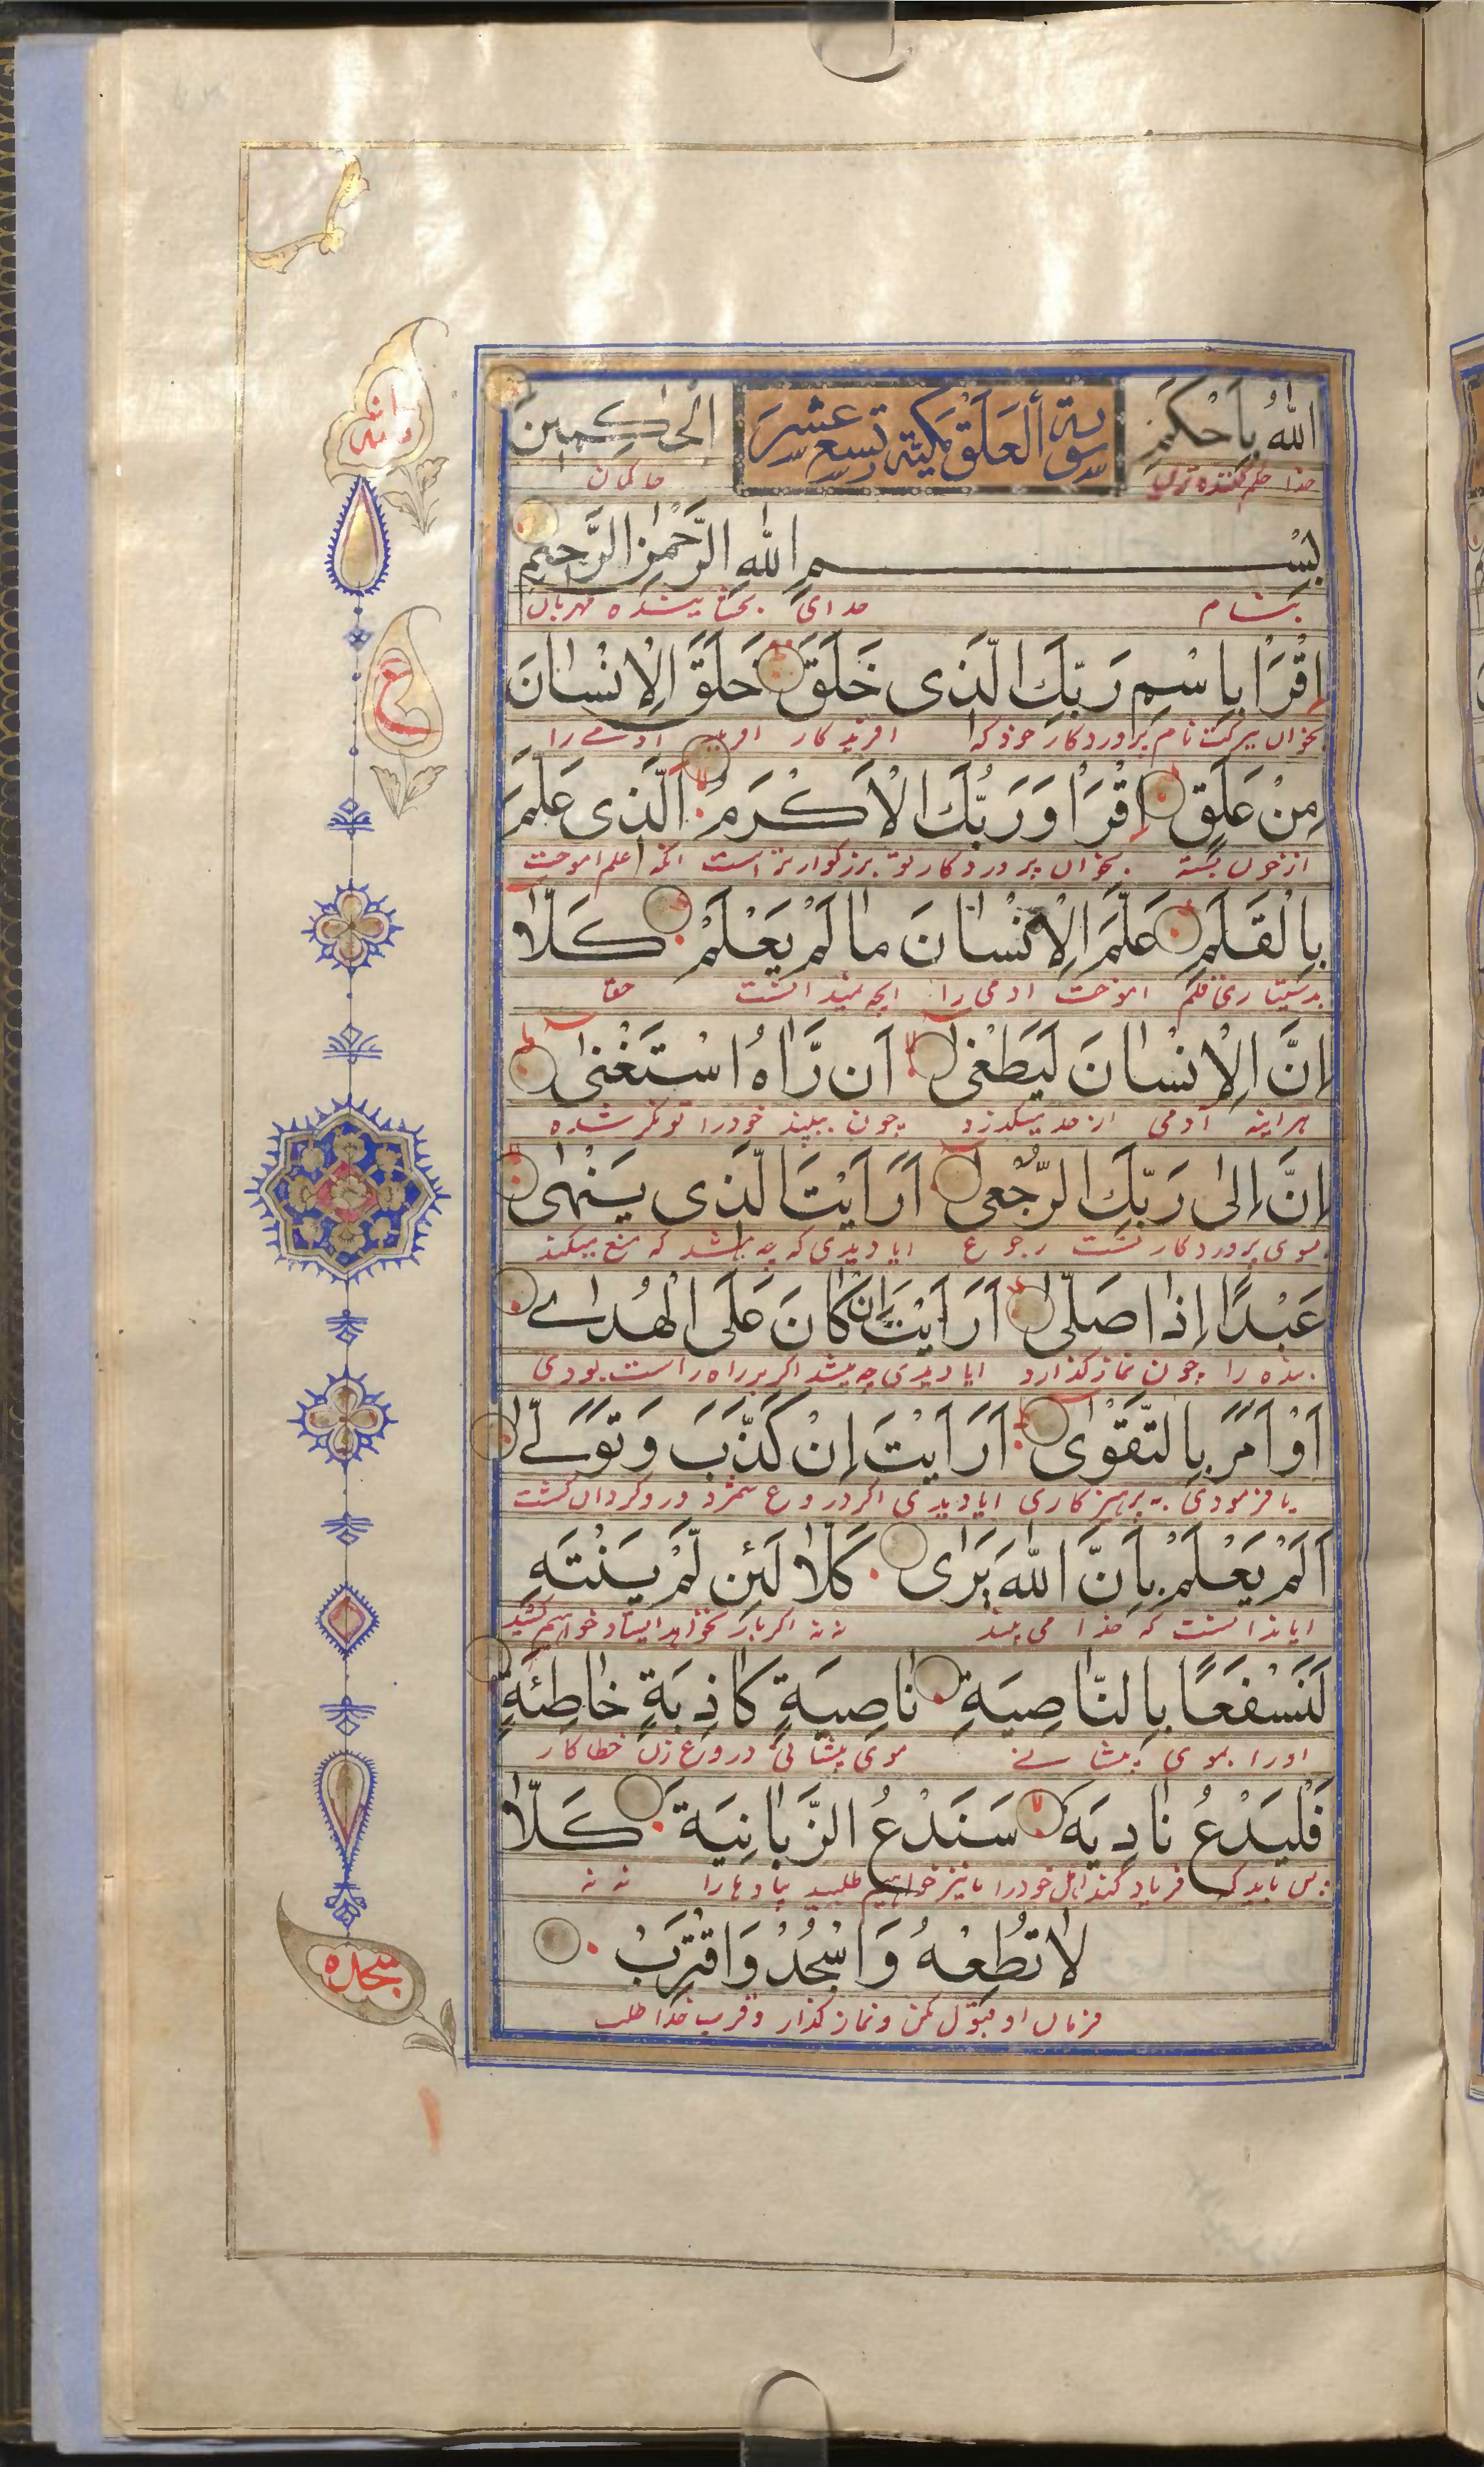 اللّٰهُ بِاَحْكَمِ سورة العلق مكية تسع عشر الْحٰاكِمينَ
خدا حکم کننده ترین حاکمان
بِسْمِ اللّٰهِ الرَّحْمٰنِ الرَّحيمِ
بنام خدای بخشاینده مهربان
اِقْرَاْ بِاسْمِ رَبِّكَ الَّذى خَلَقَ خَلَقَ الْاِنْسٰانَ
بخوان ببرکت نام پروردکار خود که افریدکار آدمی را
مِنْ عَلَقٍ اِقْرَاْ وَ رَبُّكَ الْاَكْرَمُ اَلَّذى عَلَّمَ
از خون بسته بخوان پروردکار تو بزرکوارتر است انکه علم اموخت
بِالْقَلَمِ عَلَّمَ الْاِنْسٰانَ مٰا لَمْ يَعْلَمْ كَلّٰا
قلم اموخت ادمی را انچه نمیدانست حقا
اِنَّ الْاِنْسٰانَ لَيَطْغٰى اَنْ رَّاٰهُ اسْتَغْنٰى
هراینه آدمی از حد میکذرد چون ببیند خود را توانکر شده
اِنَّ اِلىٰ رَبِّكَ الرُّجْعٰى اَرَاَيْتَ الَّذى يَنْهٰى
بسوی پروردکار تست رجوع ایا دیدی که چه باشد که منع میکند
عَبْدًا اِذٰا صَلّٰى اَرَاَيْتَ اِنْ كٰانَ عَلَى الْهُدٰى
بنده را چون نماز کذارد ایا دیدی چه میشد اکر بر راه راست بودی
اَوْ اَمَرَ بِالتَّقْوٰى اَرَاَيْتَ اِنْ كَذَّبَ وَ تَوَلّٰى
یا فرمودی به پرهیزکاری ایا دیدی اکر دروغ شمرد و روکردان کشت
اَلَمْ يَعْلَمْ بِاَنَّ اللّٰهَ يَرٰى كَلّٰا لَئِنْ لَمْ يَنْتَهِ
ایا ندانست که خدا می بیند نه نه اکر باز نخواهد ایستاد خواهیم کشید
لَنَسْفَعًا بِالنّٰاصِيَةِ نٰاصِيَةٍ كٰاذِبَةٍ خٰاطِئَةٍ
او را بموی پیشانی موی پیشانی دروغ زن خطا کار
فَلْيَدْعُ نٰادِيَهُ سَنَدْعُ الزَّبٰانِيَةَ كَلّٰا
پس باید که فریاد کند اهل خود را ما نیز خواهیم طلبید پیادها را نه نه
لٰا تُطِعْهُ وَ اسْجُدْ وَ اقْتَرِبْ
فرمان او قبول مکن و نماز کذار و قرب خدا طلب
ع
سجده